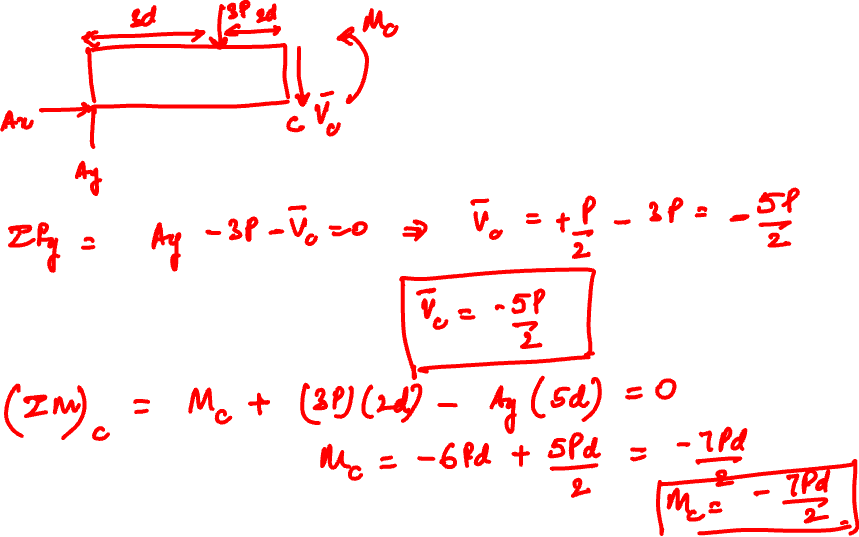 3d 3P 2d M_c
Ax C V̄_c
Ay
ΣFy = Ay - 3P - V̄_c = 0 ⇒ V̄_c = +P/2 - 3P = -5P/2
V̄_c = -5P/2
(ΣM)_c = M_c + (3P)(2d) - Ay(5d) = 0
M_c = -6Pd + 5Pd/2 = -7Pd/2
M_c = -7Pd/2